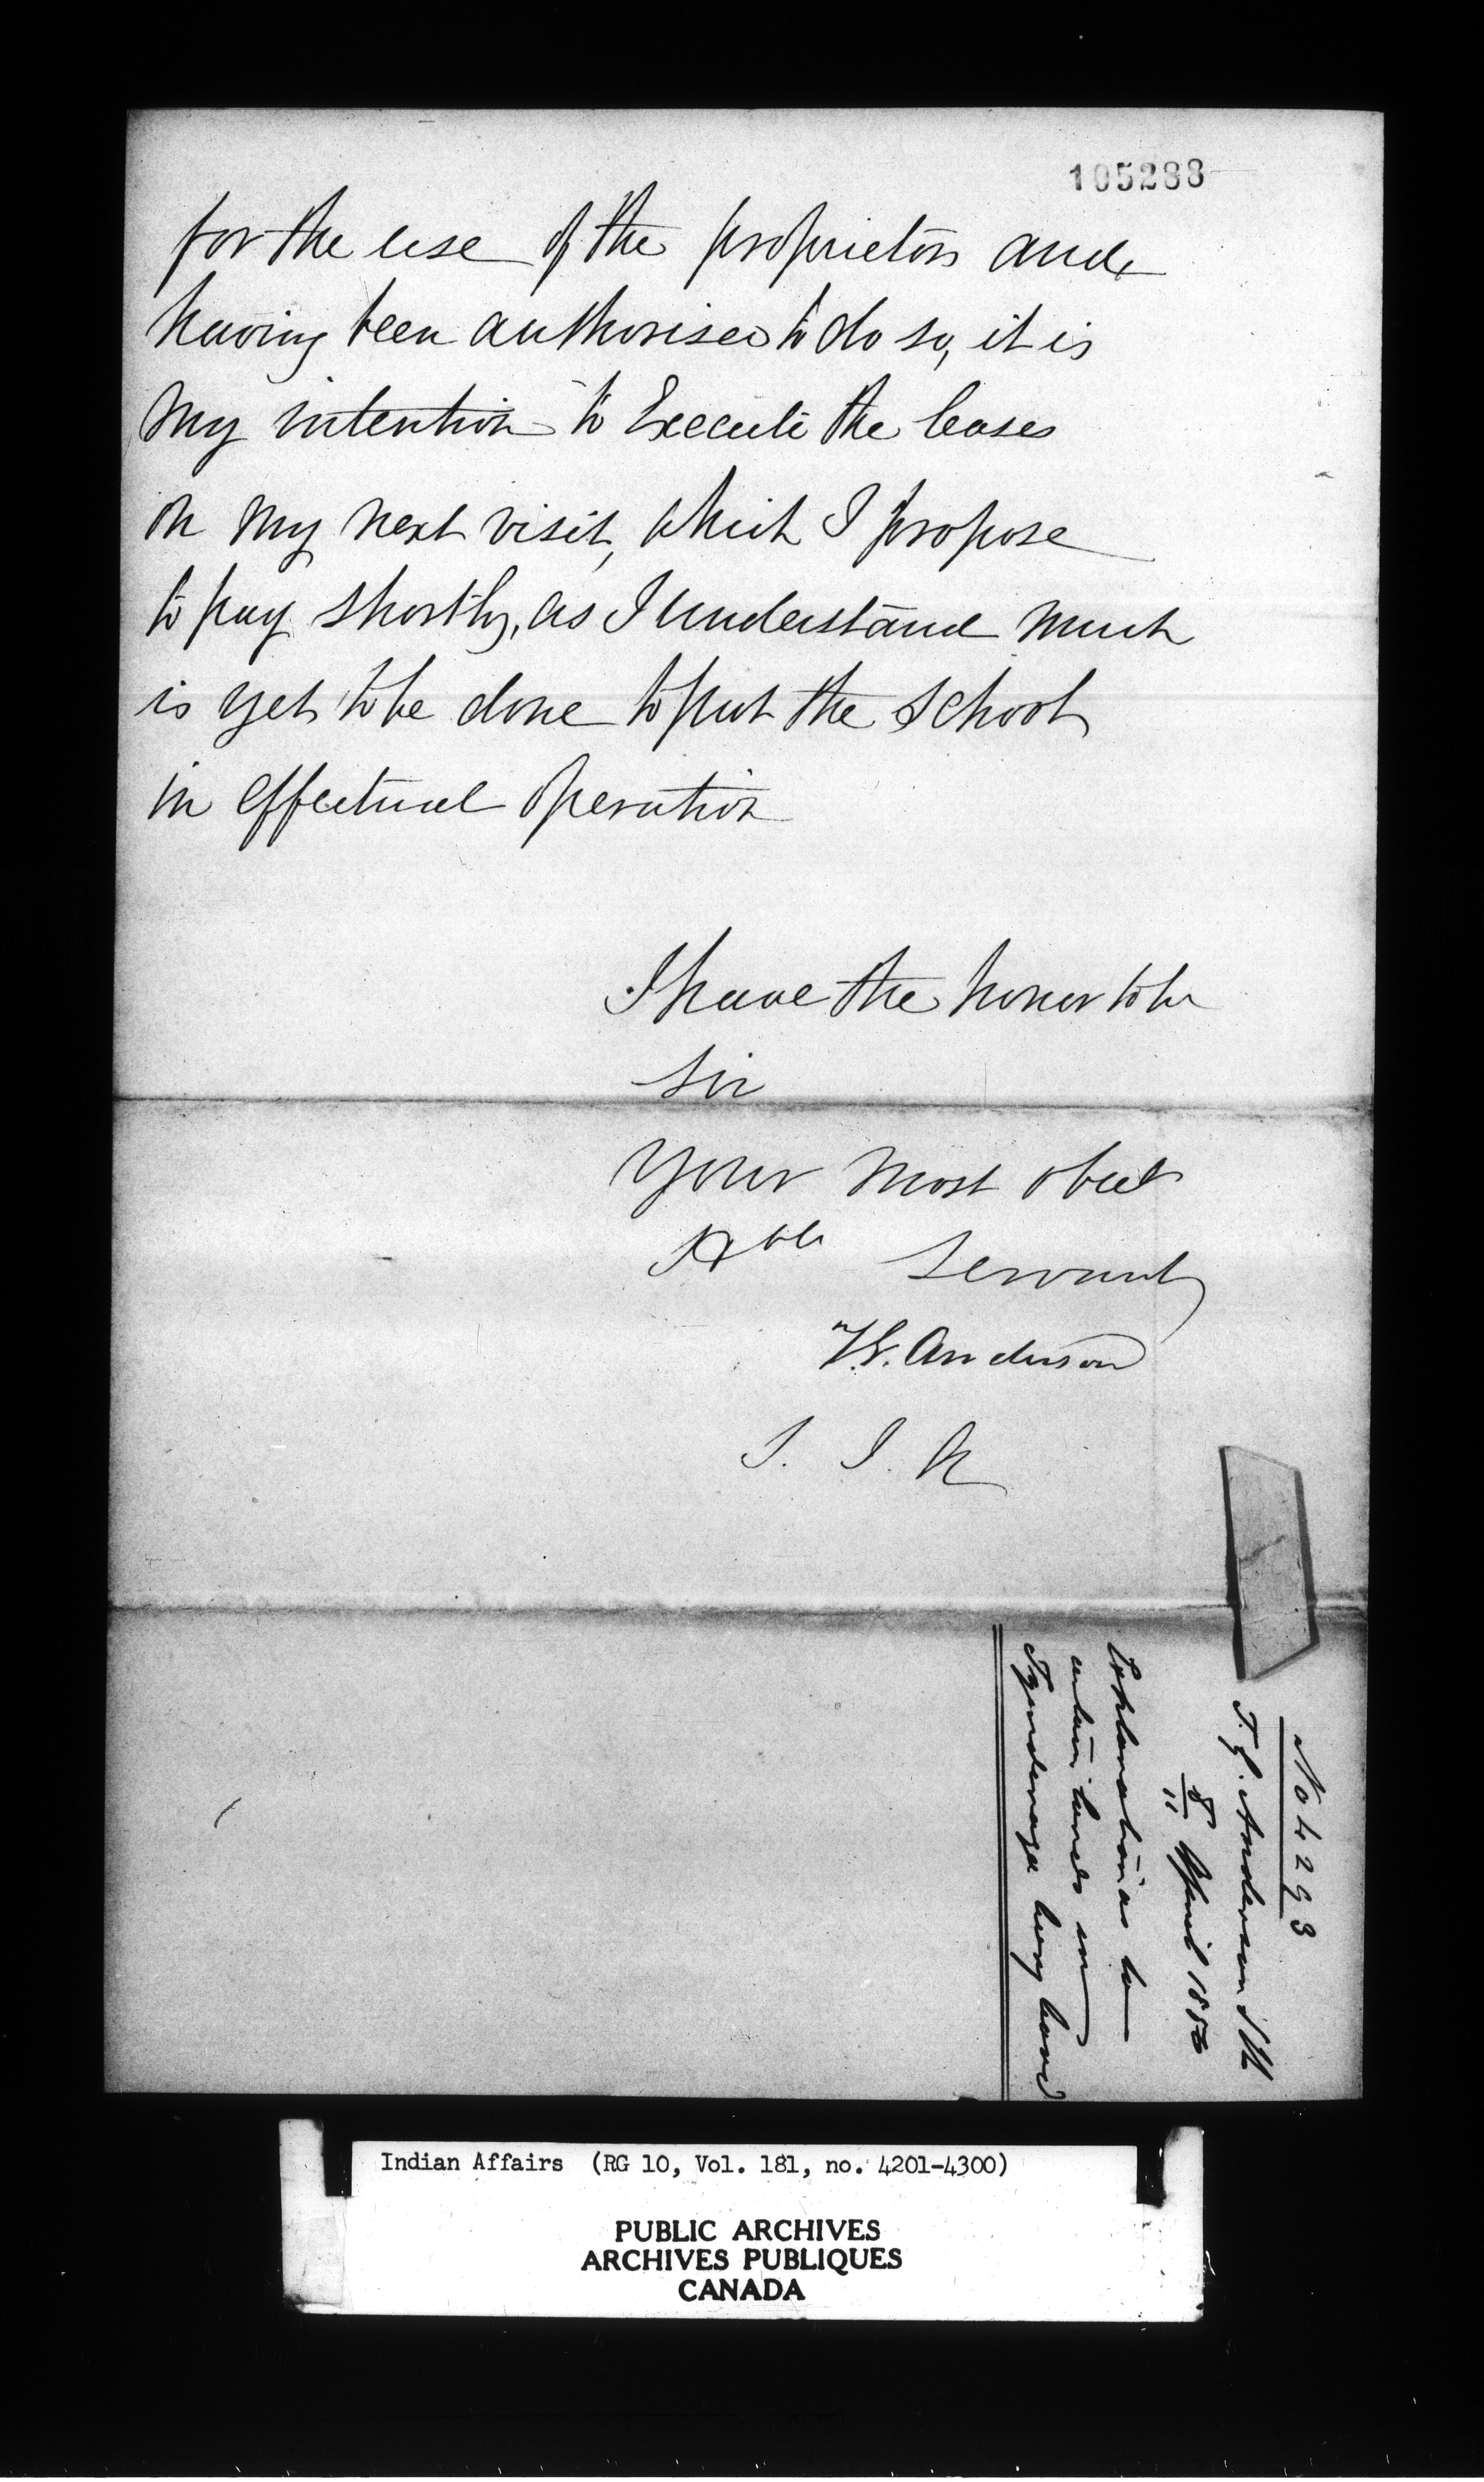 105288
for the use of the proprietors and
having been authorised to do so, it is
my intention to Execute the leases
on my next visit, which I propose
to pay shortly, as I understand much
is yet to be done to put the school
in effectual operation
I have the honor to be
Sir
your most obed
Hble Servant
T.G. Anderson
S. I. A
No 4293
T. G. Anderson S I A
8/11 April 1850
Explanation as to
certain lands in
Tyendenaga being leased
Indian Affairs (RG 10, Vol. 181, no. 4201-4300)
PUBLIC ARCHIVES
ARCHIVES PUBLIQUES
CANADA